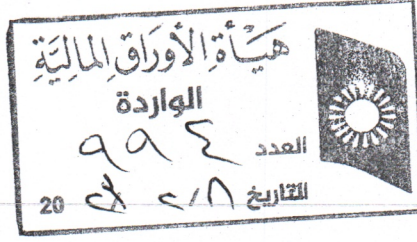 هَيْأَةُ الأَوْرَاقِ المَالِيَّةِ
الواردة
العدد ٩٩٤
التاريخ ٢/٨ 20